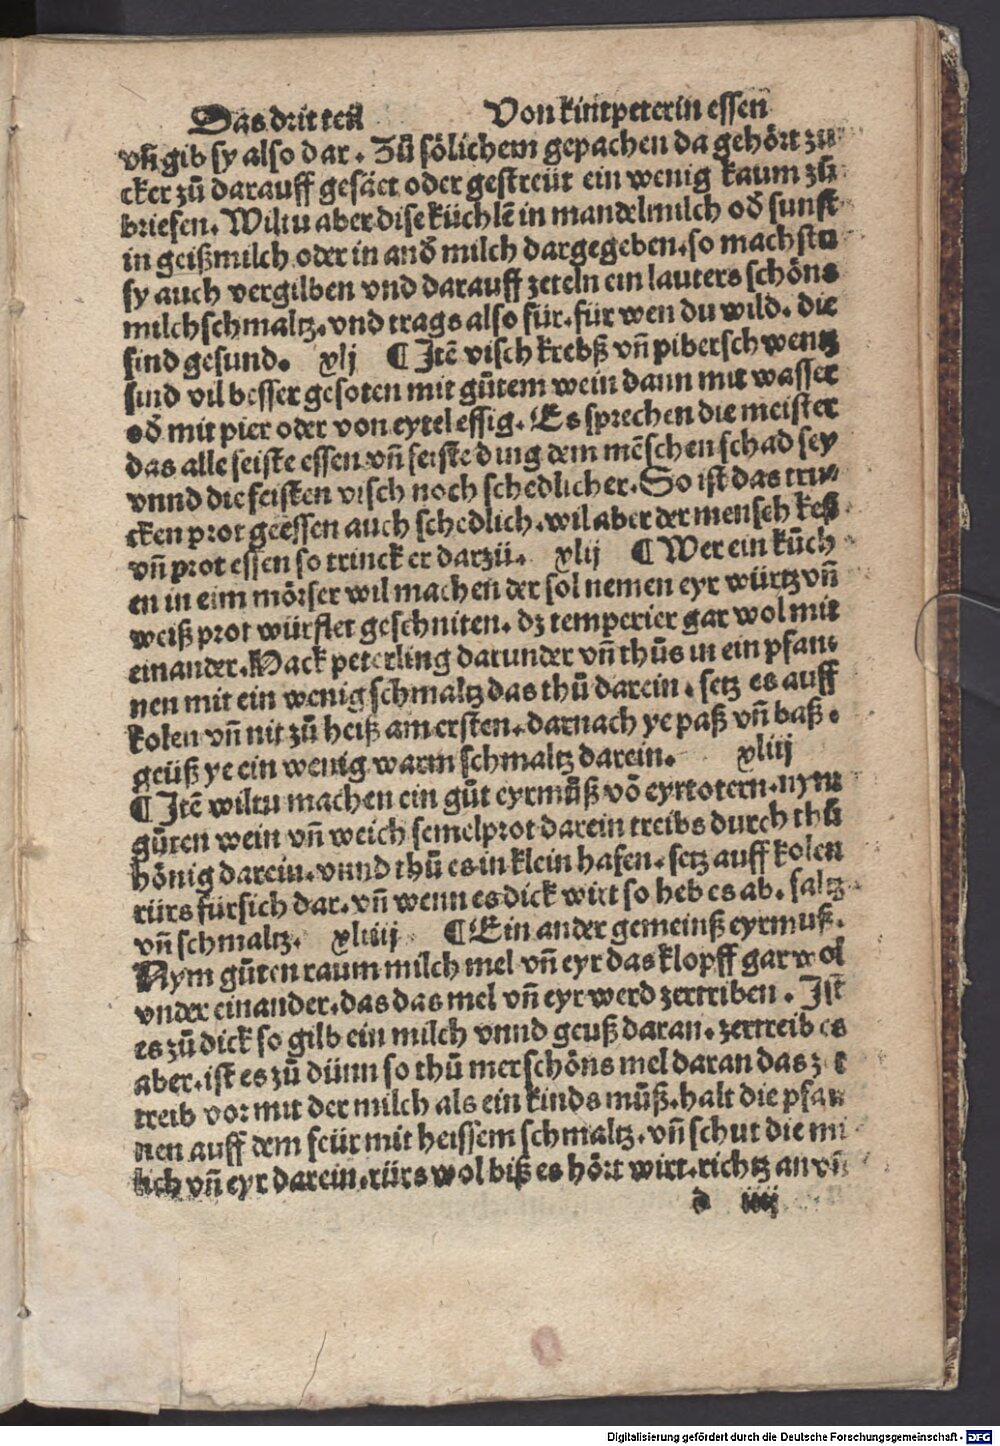 Das drit teil Von kintpeterin essen
vñ gib sy also dar. Zů sölichem gepachen da gehört zu
cker zů darauff gesäet oder gestreüt ein wenig kaum zů
briefen. Wiltu aber dise küchlē in mandelmilch oď sunst
in geißmilch oder in anď milch dargegeben. so machstu
sy auch vergilben vnd darauff zeteln ein lauters schöns
milchschmaltz. vnd trags also für. für wen du wild. die
sind gesund. xlj ¶ Jtē visch krebß vñ piberschwentz
sind vil besser gesoten mit gůtem wein dann mit wasser
oď mit pier oder von eytel essig. Es sprechen die meister
das alle feiste essen vñ feiste ding dem mēschen schad sey
vnnd die feisten visch noch schedlicher. So ist das tru⸗
cken prot geessen auch schedlich. wil aber der mensch keß
vñ prot essen so trinck er darzů. xlij ¶ Wer ein kůch
en in eim mörser wil machen der sol nemen eyr würtz vñ
weiß prot würflet geschniten. dz temperier gar wol mit
einander. Hack peterling darunder vñ thůs in ein pfan⸗
nen mit ein wenig schmaltz das thů darein. setz es auff
kolen vñ nit zů heiß am ersten. darnach ye paß vñ baß.
geüß ye ein wenig warm schmaltz darein. xliij
¶ Jtē wiltu machen ein gůt eyrmůß vō eyrtotern. nym
gůten wein vñ weich semelprot darein treibs durch thů
hönig darein. vnnd thů es in klein hafen. setz auff kolen
rürs fürsich dar. vñ wenn es dick wirt so heb es ab. saltz
vñ schmaltz. xliiij ¶ Ein ander gemeinß eyrmuß.
Nym gůten raum milch mel vñ eyr das klopff gar wol
vnder einander. das das mel vñ eyr werd zertriben. Jst
es zů dick so gilb ein milch vnnd geuß daran. zertreib es
aber. ist es zů dünn so thů mer schöns mel daran das zer
treib vor mit der milch als ein kinds můß. halt die pfan
nen auff dem feür mit heissem schmaltz. vñ schut die mi
lich vñ eyr darein. rürs wol biß es hört wirt. richtz an vñ
d iiij
Digitalisierung gefördert durch die Deutsche Forschungsgemeinschaft - DFG